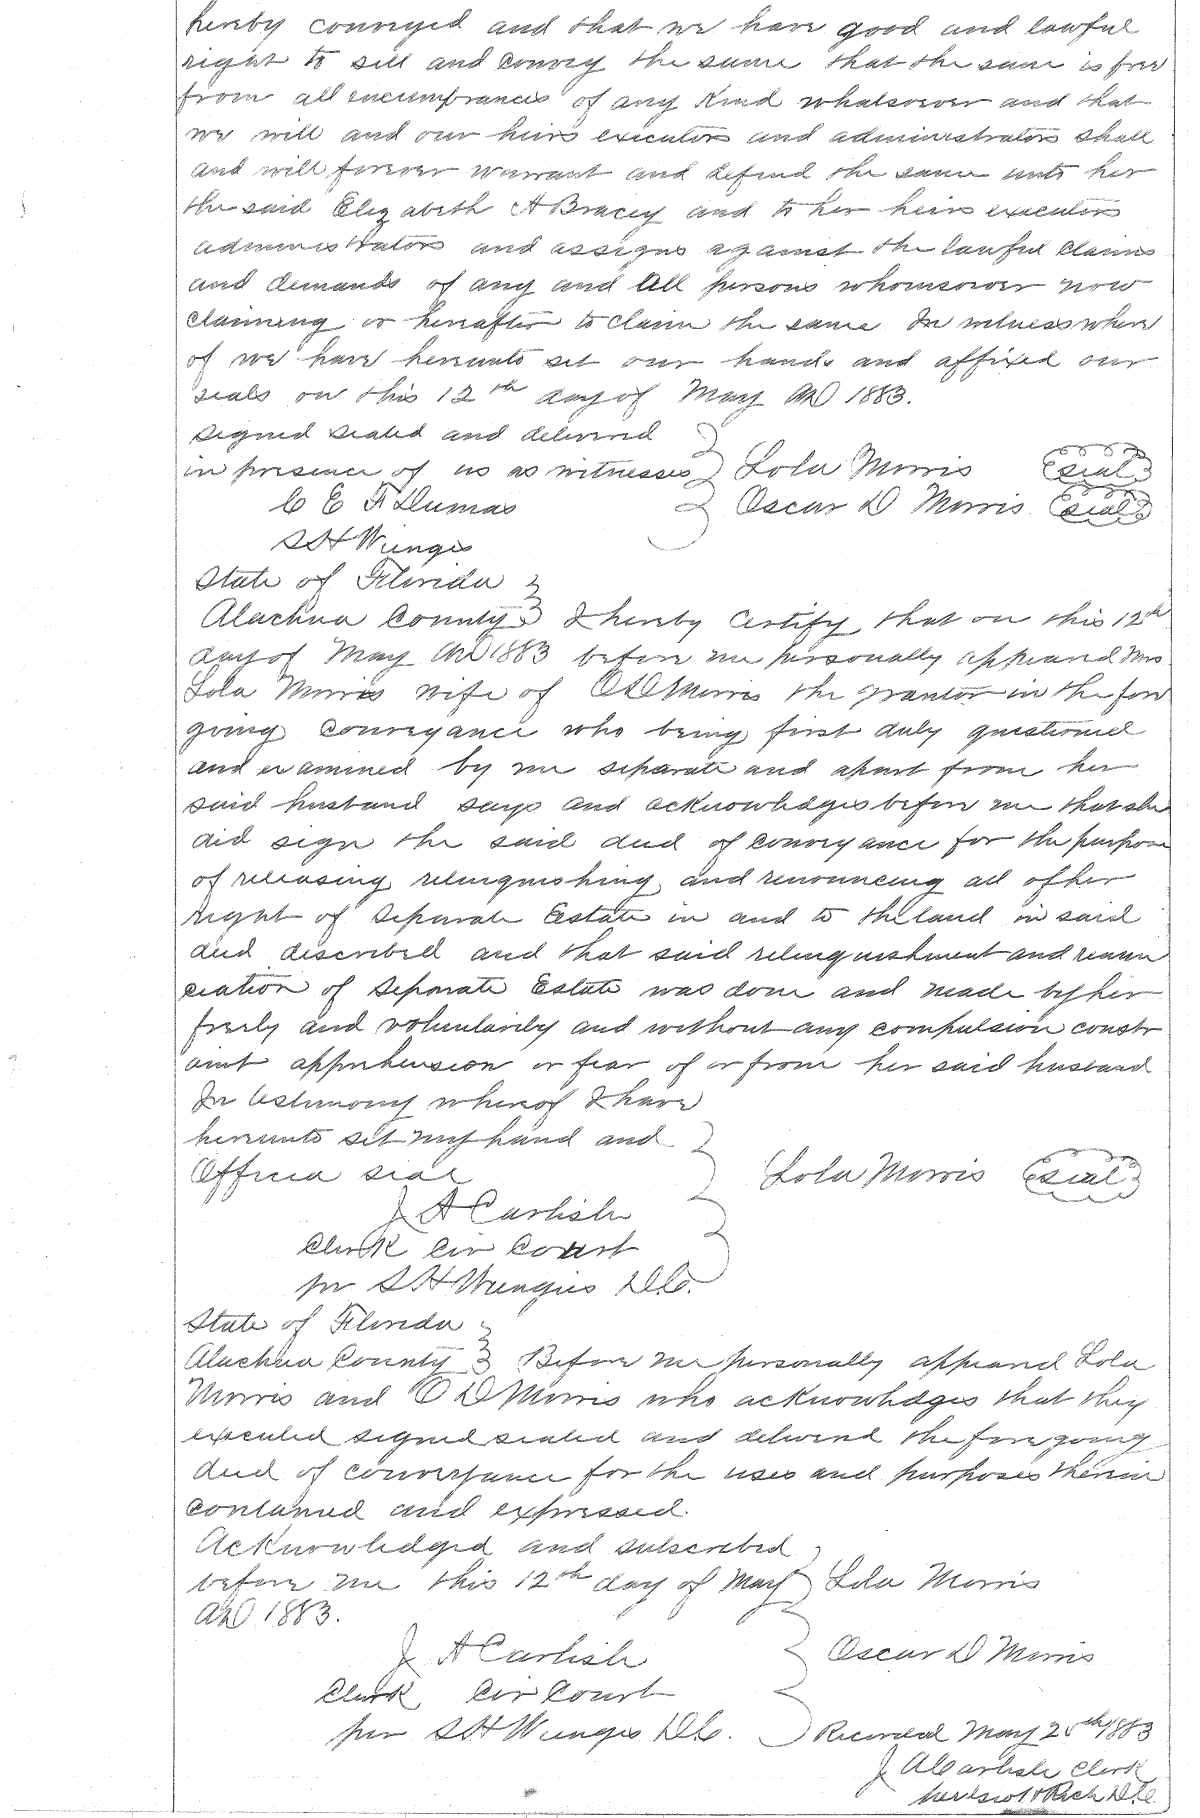 hereby conveyed and that we have good and lawful
right to sell and convey the same that the same is free
from all encumbrances of any kind whatsoever and that
we will and our heirs executors and administrators shall
and will forever warrant and defend the same unto her
the said Elizabeth A Bracey and to her heirs executors
administrators and assigns against the lawful claims
and demands of any and all persons whomsoever now
claiming or hereafter to claim the same In witness where
of we have hereunto set our hands and affixed our
seals on this 12th day of May AD 1883.
signed sealed and delivered
in presence of us as witnesses Lola Morris seal
C E F Dumas Oscar D Morris seal
S H
State of Florida
Alachua County I hereby certify that on this 12th
day of May AD 1883 before me personally appeared Mrs
Lola Morris wife of O D Morris the grantor in the fore
going conveyance who being first duly questioned
and examined by me separate and apart from her
said husband says and acknowledges before me that she
did sign the said deed of conveyance for the purpose
of releasing relinquishing and renouncing all of her
right of Separate Estate in and to the land in said
deed described and that said relinquishment and renun
ciation of Separate Estate was done and made by her
freely and voluntarily and without any compulsion constr
aint apprehension or fear of or from her said husband
In testimony whereof I have
hereunto set my hand and
Official seal Lola Morris seal
J A Carlisle
Clerk Cir Court
per S H D.C.
State of Florida
Alachua County Before me personally appeared Lola
Morris and O D Morris who acknowledges that they
executed signed sealed and delivered the foregoing
deed of conveyance for the uses and purposes therein
contained and expressed.
Acknowledged and subscribed
before me this 12th day of May Lola Morris
AD 1883.
J A Carlisle Oscar D Morris
Clerk Cir Court
per S H D.C. Recorded May 1883
J A Carlisle Clerk
D.C.